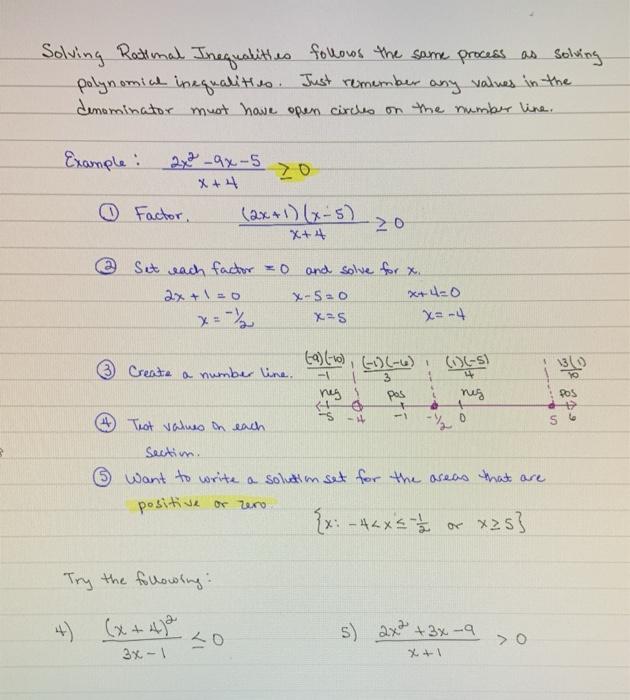 Solving Rational Inequalities follows the same process as solving
polynomial inequalities. Just remember any values in the
denominator must have open circles on the number line.
Example: (2x² - 9x - 5)/(x + 4) ≥ 0
① Factor. ((2x+1)(x-5))/(x+4) ≥ 0
② Set each factor = 0 and solve for x.
2x + 1 = 0 x - 5 = 0 x + 4 = 0
x = -½ x = 5 x = -4
③ Create a number line. (-9)(-10)/-1 (-1)(-6)/3 (1)(-5)/4 13(1)/10
neg pos neg pos
-5 -4 -1 -½ 0 5 6
④ Test values in each
section.
⑤ Want to write a solution set for the areas that are
positive or zero.
{x: -4 < x ≤ -1/2 or x ≥ 5}
Try the following:
4) (x + 4)²/(3x - 1) ≤ 0 5) (2x² + 3x - 9)/(x + 1) > 0